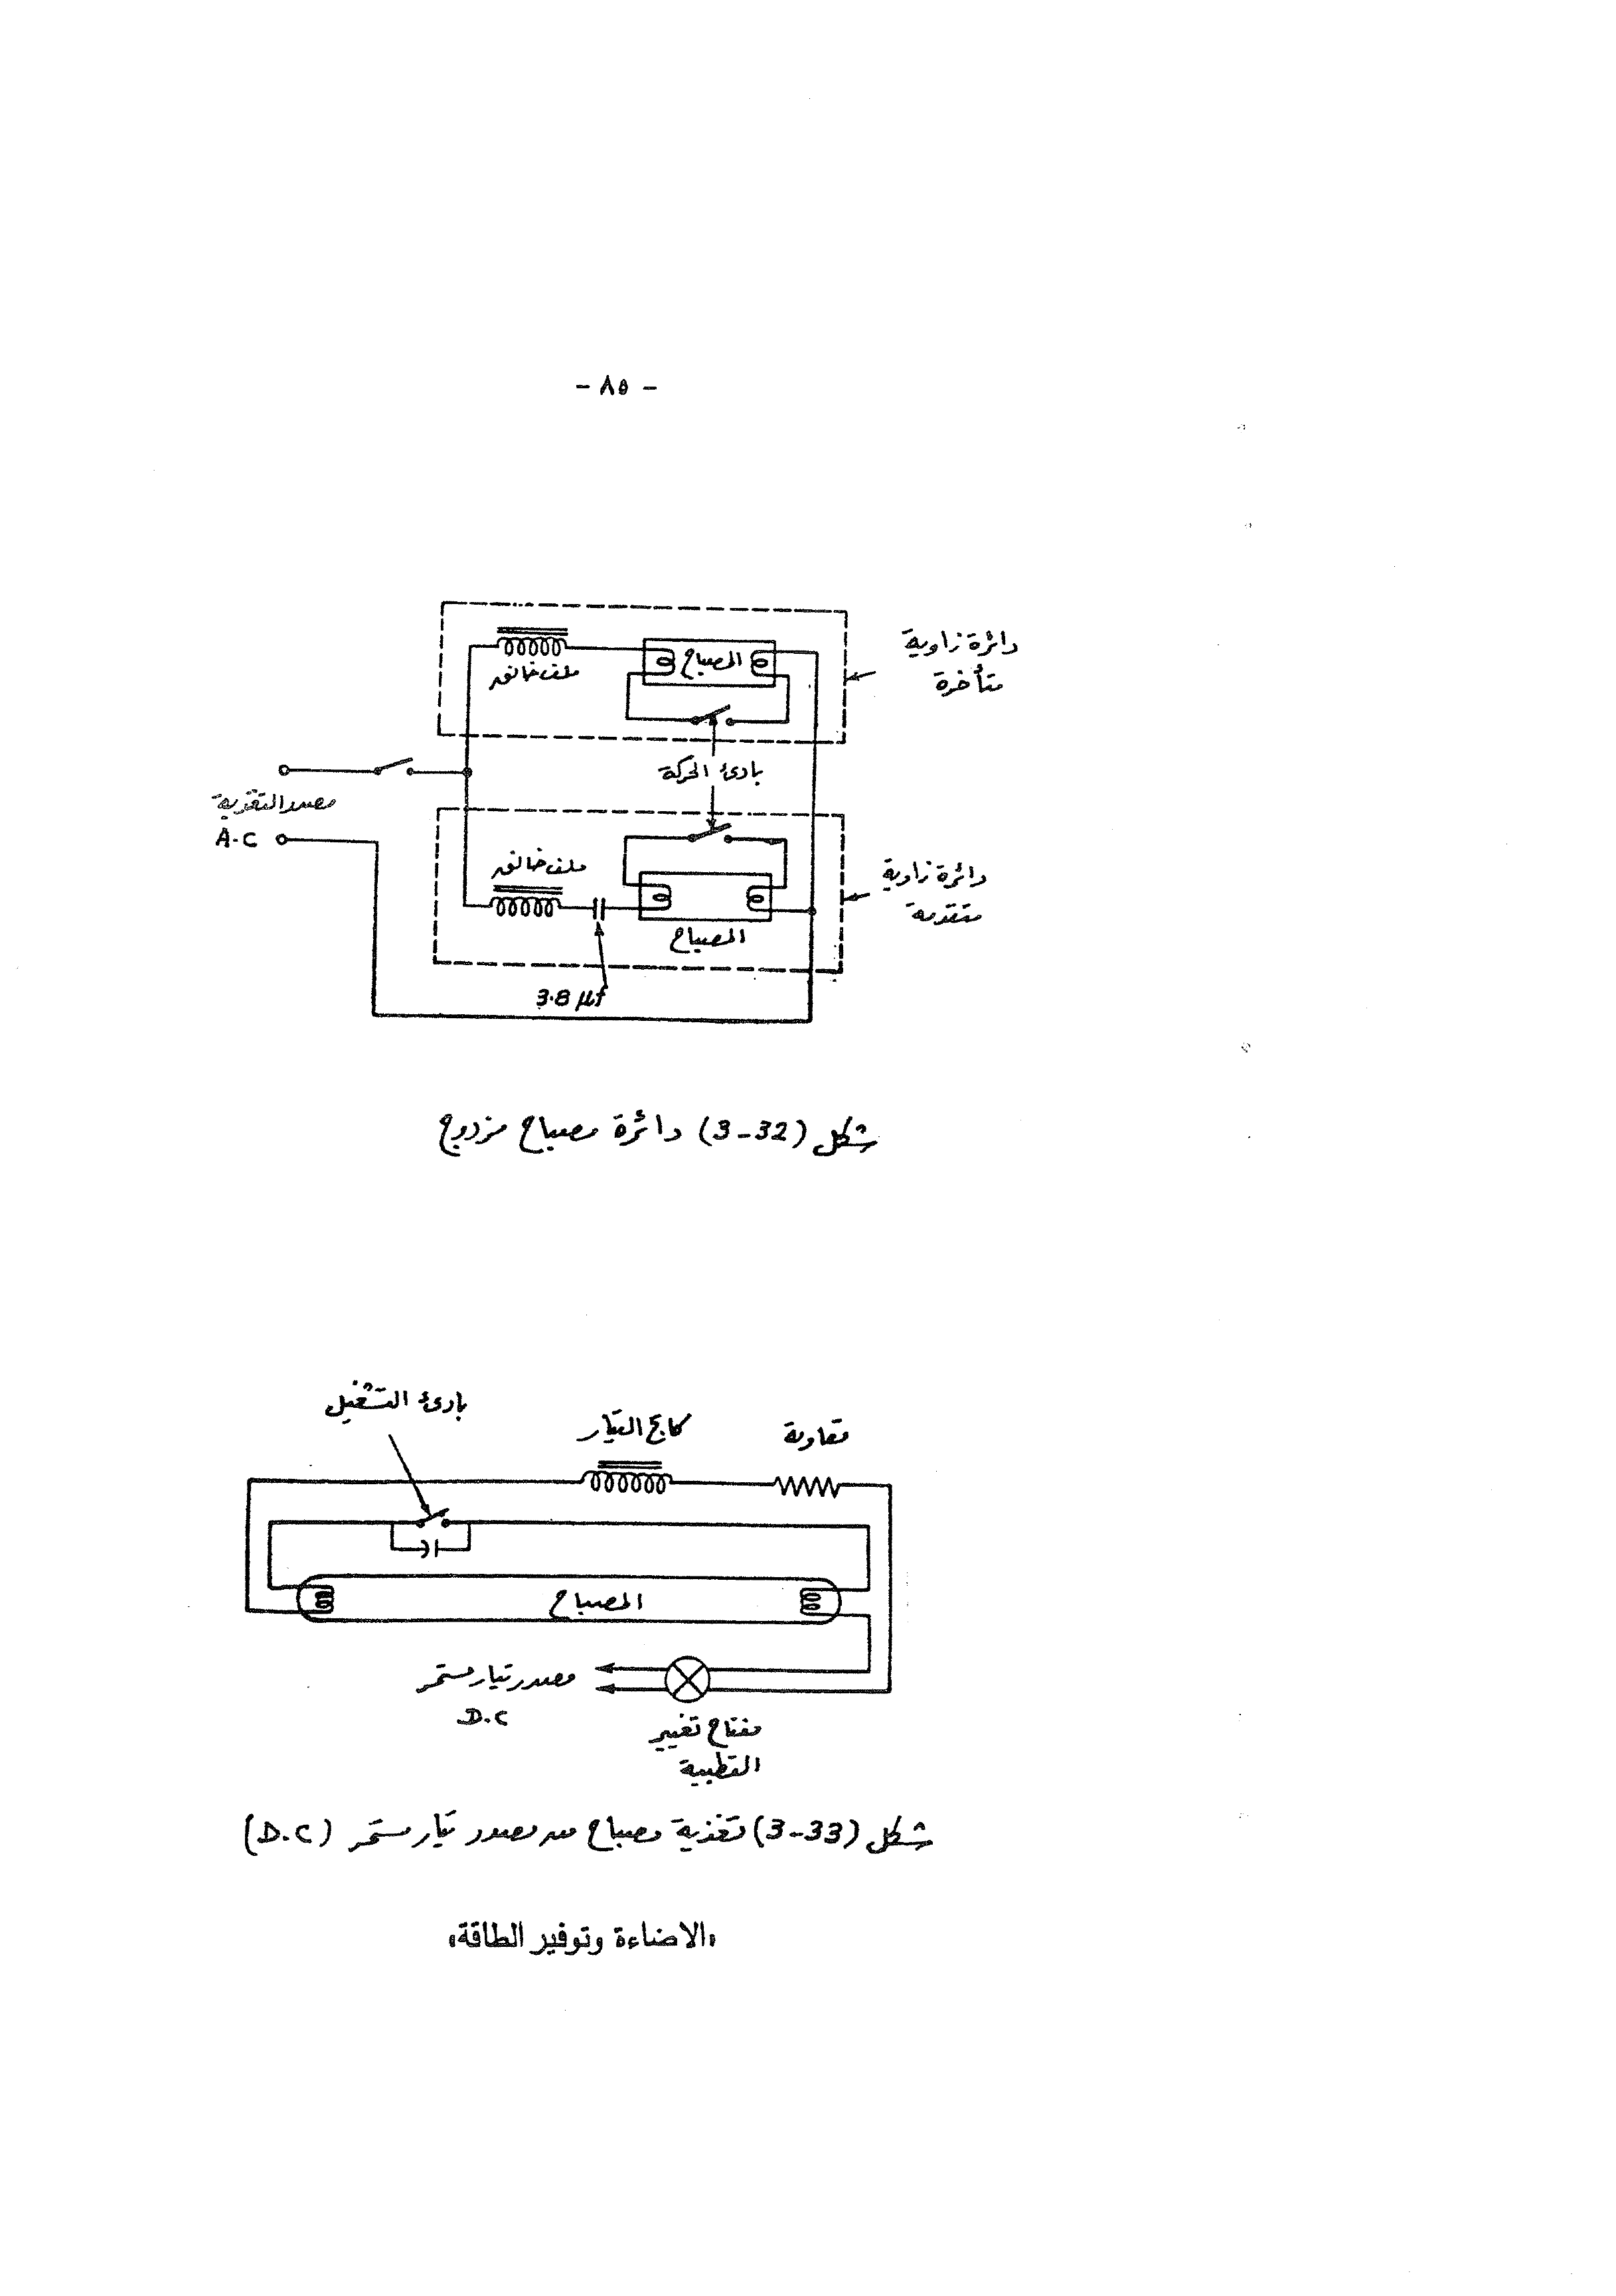 - ٨٥ -
دائرة زاوية
متأخرة
المصباح
ملف خانق
بادئ الحركة
مصدر التغذية
A.C
ملف خانق
دائرة زاوية
متقدمة
المصباح
3.8 µf
شكل (3-32) دائرة مصباح مزدوج
بادئ التشغيل
كابح التيار
مقاومة
المصباح
مصدر تيار مستمر
D.C
مفتاح تغيير
القطبية
شكل (3-33) تغذية مصباح من مصدر تيار مستمر (D.C)
«الاضاءة وتوفير الطاقة»